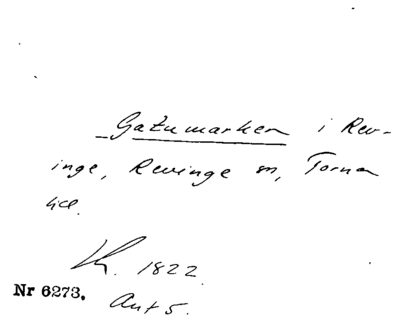 Gatumarken i Rev-
inge, Revinge sn, Torna
hd.
Lh. 1822.
Nr 6273. Ant 5.